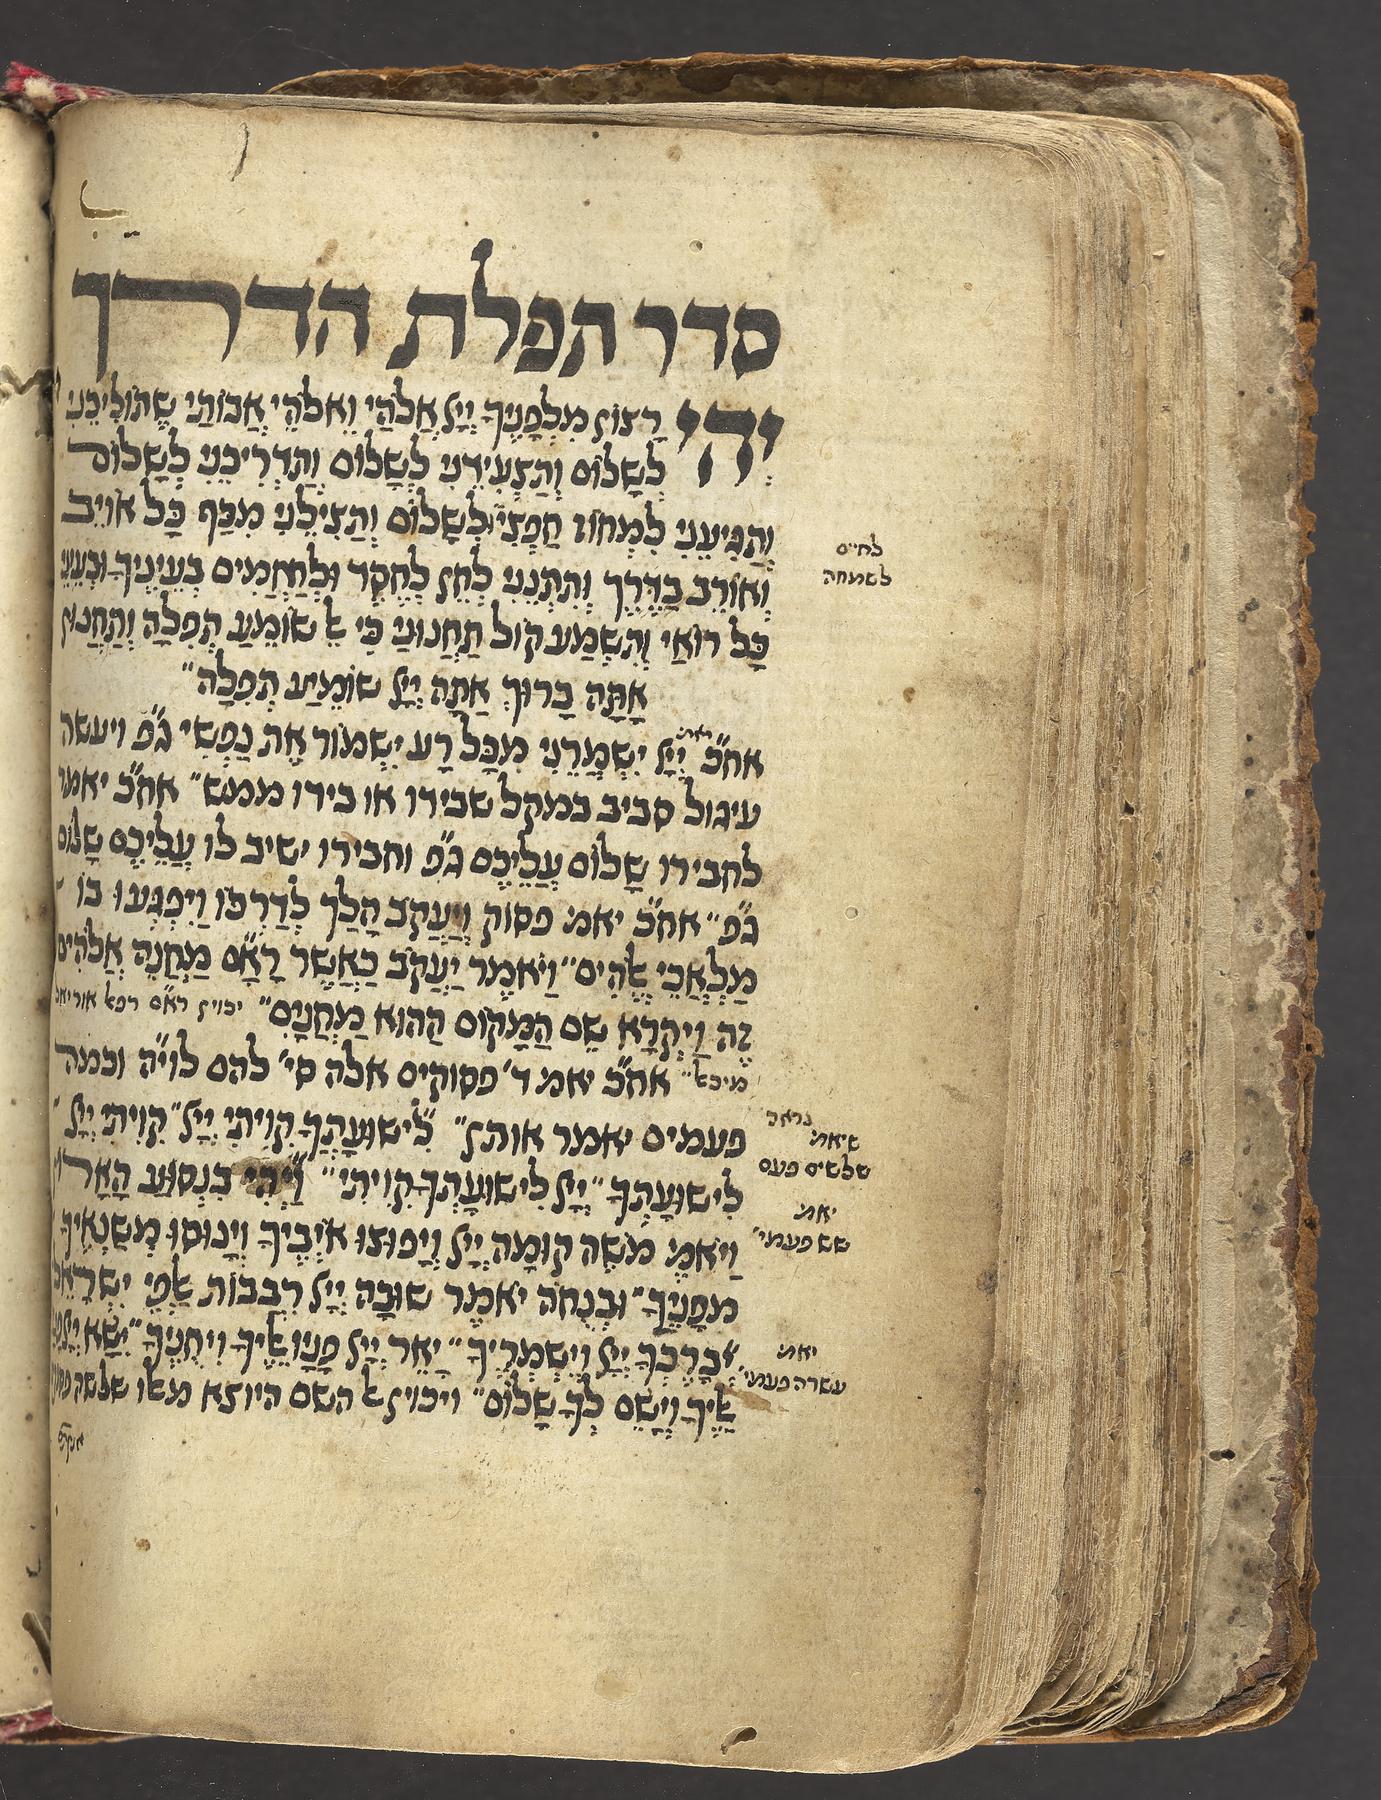 סדר תפלת הדרך
יְהִי רָצוֹן מִלְּפָנֶיךָ יְיָ אֱלֹהַי וֵאלֹהֵי אֲבוֹתַי שֶׁתּוֹלִיכֵנִי
לְשָׁלוֹם וְתַצְעִידֵנִי לְשָׁלוֹם וְתַדְרִיכֵנִי לְשָׁלוֹם
וְתַגִּיעֵנִי לִמְחוֹז חֶפְצִי לְשָׁלוֹם וְתַצִּילֵנִי מִכַּף כָּל אוֹיֵב
לחיים
לשמחה
וְאוֹרֵב בַּדֶּרֶךְ וְתִתְּנֵנִי לְחֵן לְחֶסֶד וּלְרַחֲמִים בְּעֵינֶיךָ וּבְעֵינֵי
כָּל רוֹאַי וְתִשְׁמַע קוֹל תַּחֲנוּנַי כִּי אֵל שׁוֹמֵעַ תְּפִלָּה וְתַחֲנוּן
אָתָּה בָּרוּךְ אַתָּה יְיָ שׁוֹמֵעַ תְּפִלָּה״
אח״כ יאמ׳ יְיָ יִשְׁמְרֵנִי מִכָּל רָע יִשְׁמוֹר אֶת נַפְשִׁי ג״פ ויעשה
עיגול סביב במקל שבידו או בידו ממש״ אח״כ יאמר
לחבירו שָׁלוֹם עֲלֵיכֶם ג״פ וחבירו ישיב לו עֲלֵיכֶם שָׁלוֹם
ג״פ״ אח״כ יאמ׳ פסוק וְיַעֲקֹב הָלַךְ לְדַרְכּוֹ וַיִּפְגְּעוּ בוֹ
מַלְאֲכֵי אֱלֹהִים״ וַיֹּאמֶר יַעֲקֹב כַּאֲשֶׁר רָאָם מַחֲנֵה אֱלֹהִים
זֶה וַיִּקְרָא שֵׁם הַמָּקוֹם הַהוּא מַחֲנָיִם״ יכוין ר״ת רפאל אוריאל
מיכאל״ אח״כ יאמ׳ ד׳ פסוקים אלה סי׳ להם לוי״ה וכמה
פעמים יאמר אותן״ לִישׁוּעָתְךָ קִוִּיתִי יְיָ״ קִוִּיתִי יְיָ
שיאמ׳
שלשים פעם
לִישׁוּעָתְךָ״ יְיָ לִישׁוּעָתְךָ קִוִּיתִי״ וַיְהִי בִּנְסוֹעַ הָאָרוֹן
יאמ׳
שש פעמי׳
וַיֹּאמֶ׳ מֹשֶׁה קוּמָה יְיָ וְיָפוּצוּ אוֹיְבֶיךָ וְיָנוּסוּ מְשַׂנְאֶיךָ
מִפָּנֶיךָ״ וּבְנֻחֹה יֹאמֶר שׁוּבָה יְיָ רִבְבוֹת אַלְפֵי יִשְׂרָאֵל
יְבָרֶכְךָ יְיָ וְיִשְׁמְרֶיךָ״ יָאֵר יְיָ פָּנָיו אֵלֶיךָ וִיחֻנֶּיךָּ״ יִשָּׂא יְיָ פָּנָיו
יאמ׳
עשרה פעמי׳
אֵלֶיךָ וְיָשֵׂם לְךָ שָׁלוֹם״ ויכוין אל השם היוצא מאלו שלשה פסוקים